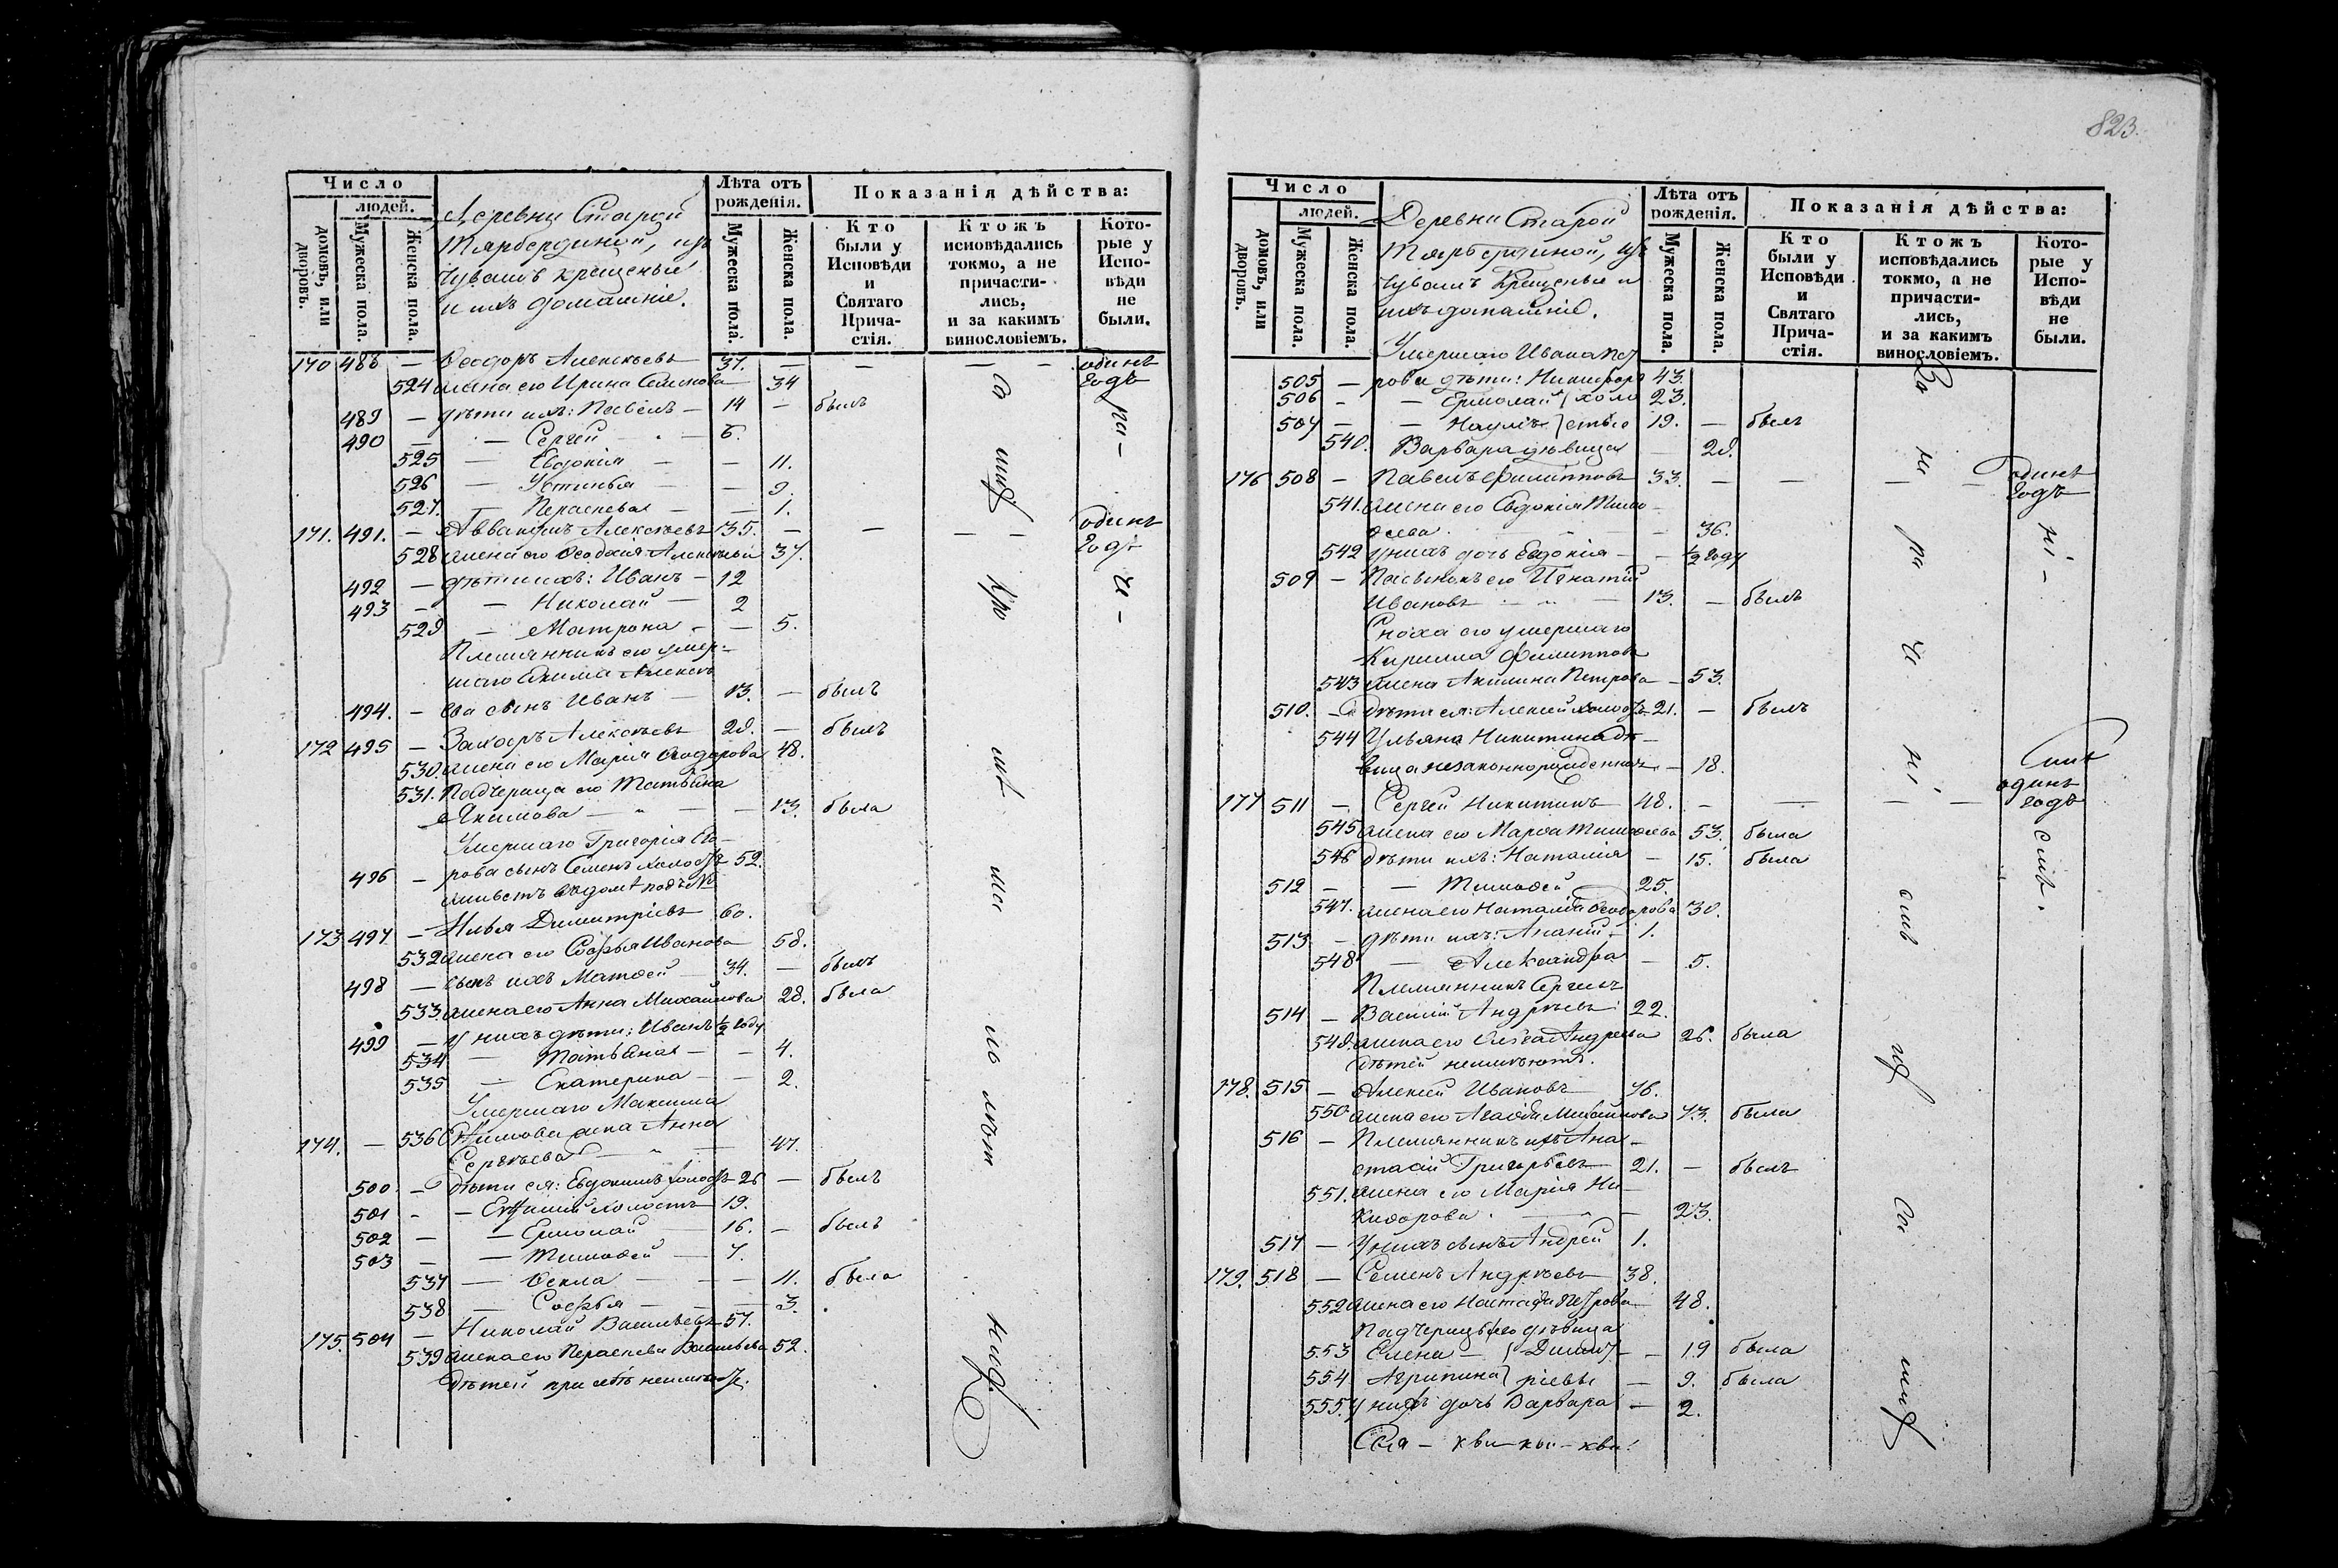 823.
Число
людей.
домовъ, или дворовъ.
Мужеска пола.
Женска пола.
Деревни Старой
Тярбердиной, изъ
Чувашъ крещеные
и ихъ домашніе.
Лѣта отъ рожденія.
Мужеска пола.
Женска пола.
Показанія дѣйства:
Кто были у Исповѣди и Святаго Причастія.
Ктожъ исповѣдались токмо, а не причастились, и за какимъ винословіемъ.
Которые у Исповѣди не были.
170 488 — Ѳеодоръ Алексѣевъ 37. — — — — одинъ годъ
524 жена его Ирина Семенова 34
489 — дѣти ихъ: Павелъ — 14 — былъ
490 — — Сергей — 6.
525 — Евдокія — — 11.
526 — Устинья — — 9.
527. — Параскева — — 1.
171. 491. — Аввакумъ Алексѣевъ 35. — — — — одинъ годъ
528 жена его Ѳеодосія Алексѣева 37.
492 — дѣти ихъ: Иванъ — 12
493 — — Николай — 2
529 — Матрона — — 5.
Племянникъ его умер-
шаго Акима Алексѣ-
494. — ева сынъ Иванъ — 13. — былъ
172 495 — Захаръ Алексѣевъ 29. — былъ
530 жена его Марія Ѳеодорова 48.
531. Падчерица его Татьяна
Якимова — — 13. была
Умершаго Григорія Его-
496 — рова сынъ Семенъ холостъ 52.
живетъ въ домѣ подъ №
173 497 — Илья Димитріевъ 60.
532 жена его Софья Иванова 58.
498 — сынъ ихъ Матѳей — 34. — былъ
533. жена его Анна Михайлова 28. была
499 — у нихъ дѣти: Иванъ ½ году
534 — Татьяна — — 4.
535 — Екатерина — — 2.
Умершаго Максима
174. — 536 Ефимова жена Анна
Сергѣева — — 47.
500. — Дѣти ея: Евдокимъ холостъ 26 — былъ
501 — — Евфимій холостъ 19.
502 — — Ермолай 16. — былъ
503 — — Тимоѳей — 7.
537 — Ѳекла — — 11. была
538 — Софья — — 3.
175. 504 — Николай Васильевъ 57.
539 жена его Параскева Васильева 52.
Дѣтей при себѣ неимѣютъ.
Число
людей.
домовъ, или дворовъ.
Мужеска пола.
Женска пола.
Деревни Старой
Тярбердиной, изъ
Чувашъ Крещеные и
ихъ домашніе.
Лѣта отъ рожденія.
Мужеска пола.
Женска пола.
Показанія дѣйства:
Кто были у Исповѣди и Святаго Причастія.
Ктожъ исповѣдались токмо, а не причастились, и за какимъ винословіемъ.
Которые у Исповѣди не были.
Умершаго Ивана Пет-
505 — рова дѣти: Никифоръ 43.
506 — — Ермолай } холо 23.
507 — — Наумъ } стые 19. — былъ
540. Варвара дѣвица — 29.
176 508 — Павелъ Филипповъ 33. — — — — одинъ годъ
541. жена его Евдокія Тимо-
ѳеева — 36.
542 у нихъ дочь Евдокія — — ½ году
509 — Пасынокъ его Игнатій
Ивановъ — 13. — былъ
Сноха его умершаго
Кирилла Филиппова
543 жена Акилина Петрова — 53.
510. — Дѣти ея: Алексей холостъ 21. — былъ
544 Ульяна Никитина дѣ-
вица незаконнорожденная — 18.
177 511 — Сергей Никитинъ 48. — — — — одинъ годъ
545 жена его Марѳа Тимоѳеева 53. была
546 Дѣти ихъ: Наталія — 15. была
512 — — Тимоѳей — 25.
547. жена его Наталія Ѳеодорова 30.
513 — дѣти ихъ: Ананій — 1.
548 — Александра — 5.
Племянникъ Сергеевъ
514 — Василій Андреевъ 22.
549. жена его Андреева 26. была
Дѣтей неимѣютъ.
178. 515 — Алексей Ивановъ 76.
550 жена его Агаѳья Михайлова 73. была
516 — Племянникъ ихъ Ана-
стасій Григорьевъ 21. — былъ
551. жена его Марія Ни-
кифорова — 23.
517 — У нихъ сынъ Андрей 1.
179. 518 — Семенъ Андреевъ 38.
552 жена его Настасья Петрова 48.
Падчерицы его дѣвица
553 Елена — } Димит- — 19 была
554 Агрипина } ріевы — 9. была
555. У нихъ дочь Варвара — 2.